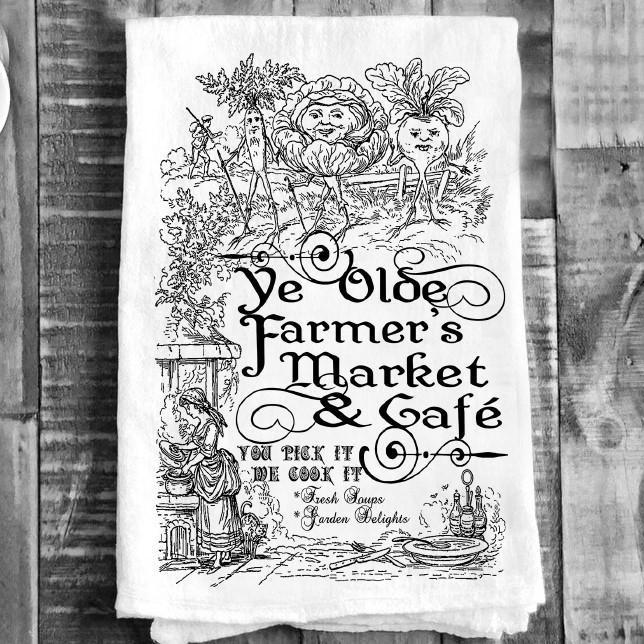 Ye Olde
Farmer's
Market
& Café
YOU PICK IT
WE COOK IT
*Fresh Soups
*Garden Delights